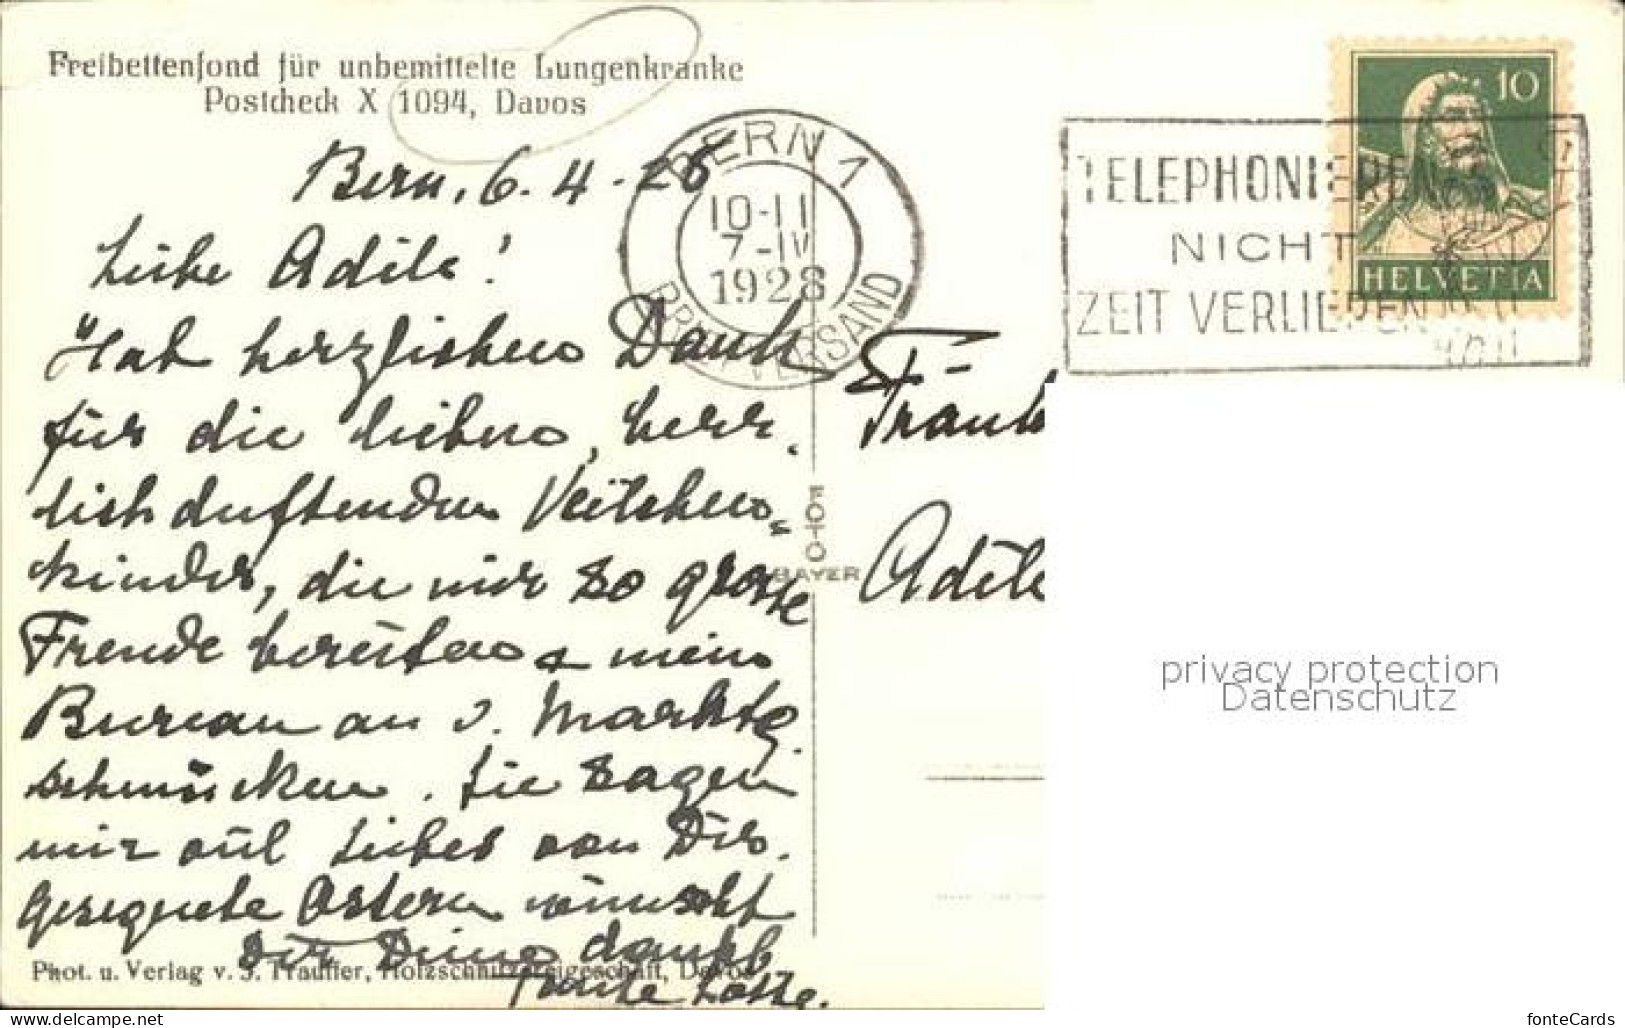 Freibettenfond für unbemittelte Lungenkranke
Postcheck X 1094, Davos
BERN 1
10-11
7-IV
1928
BRIEFVERSAND
TELEPHONIEREN
NICHT
ZEIT VERLIEREN
10
HELVETIA
Bern, 6. 4. 28
Liebe Adile!
Hab herzlichen Dank
für die lieben, herr-
lich duftenden Veilchen-
kinder, die mir so grosse
Freude bereiten & mein
Bureau an d. Marktg.
schmücken. Sie sagen
mir viel Liebes von Dir.
Gesegnete Ostern wünscht
Dir Deine dankb
Tante Lotte.
Fräul
Adile
FOTO
BAYER
Phot. u. Verlag v. J. Trauffer, Holzschnitzereigeschäft, Davos
privacy protection
Datenschutz
www.delcampe.net
fonteCards